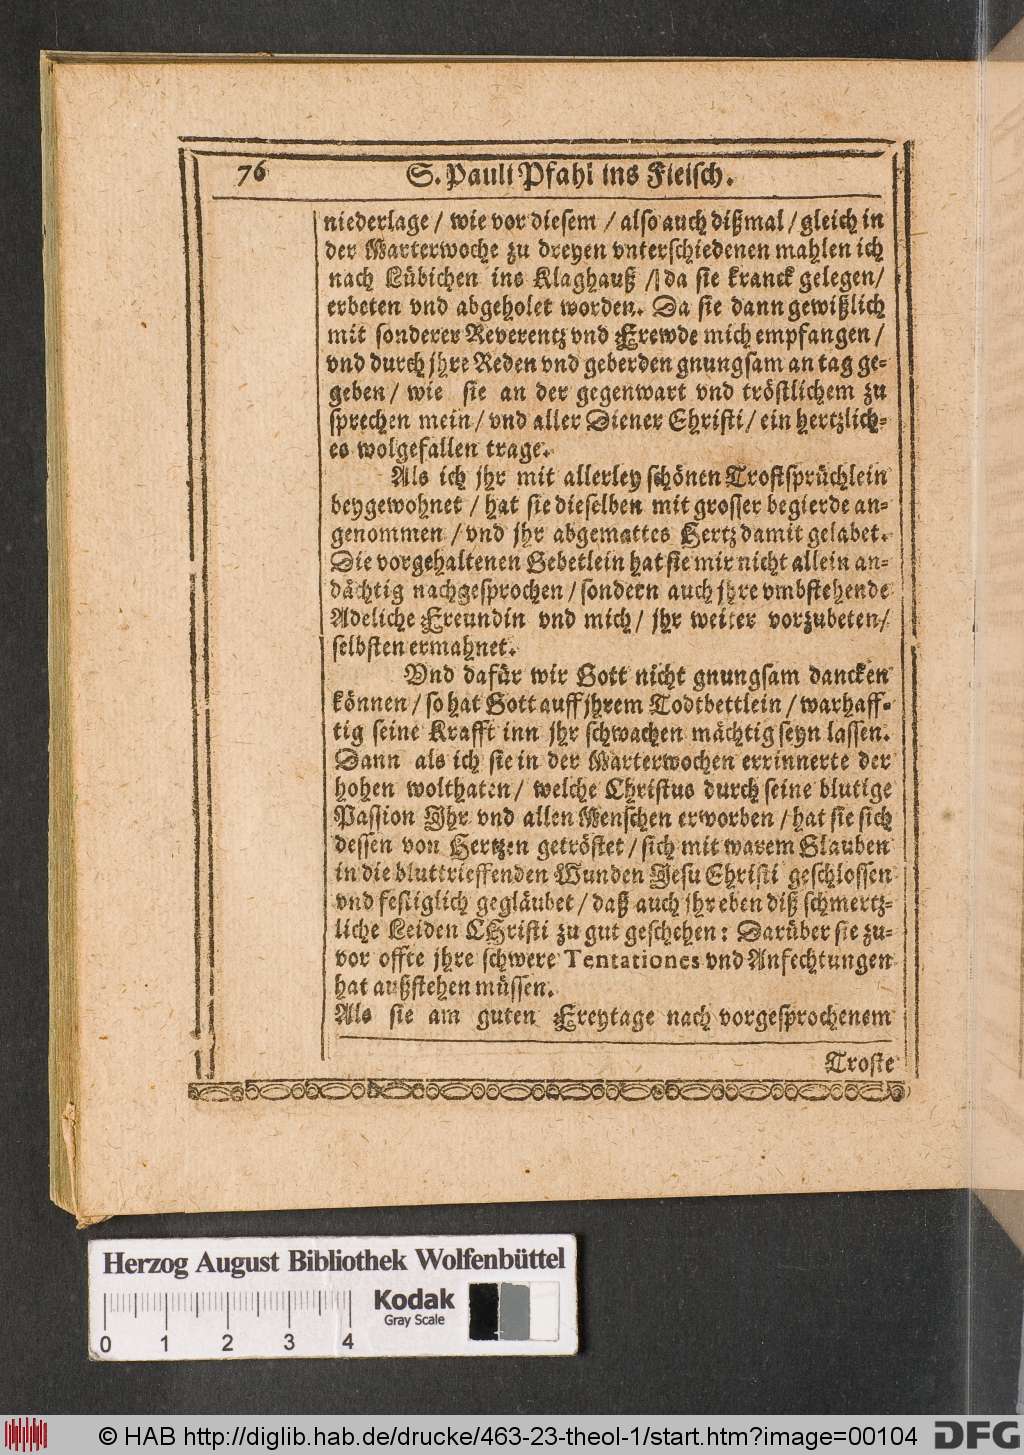 76 S. Pauli Pfahl ins Fleisch.
niederlage / wie vor diesem / also auch dißmal / gleich in
der Marterwoche zu dreyen vnterschiedenen mahlen ich
nach Lübichen ins Klaghauß / da sie kranck gelegen/
erbeten vnd abgeholet worden. Da sie dann gewißlich
mit sonderer Reverentz vnd Frewde mich empfangen /
vnd durch jhre Reden vnd geberden gnungsam an tag ge-
geben / wie sie an der gegenwart vnd tröstlichem zu
sprechen mein / vnd aller Diener Christi / ein hertzlich-
es wolgefallen trage.
Als ich jhr mit allerley schönen Trostsprüchlein
beygewohnet / hat sie dieselben mit grosser begierde an-
genommen / vnd jhr abgemattes Hertz damit gelabet.
Die vorgehaltenen Gebetlein hat sie mir nicht allein an-
dächtig nachgesprochen / sondern auch jhre vmbstehende
Adeliche Freundin vnd mich / jhr weiter vorzubeten/
selbsten ermahnet.
Vnd dafür wir Gott nicht gnungsam dancken
können / so hat Gott auff jhrem Todtbettlein / warhaff-
tig seine Krafft inn jhr schwachen mächtig seyn lassen.
Dann als ich sie in der Marterwochen errinnerte der
hohen wolthaten / welche Christus durch seine blutige
Passion Jhr vnd allen Menschen erworben / hat sie sich
dessen von Hertzen getröstet / sich mit warem Glauben
in die bluttrieffenden Wunden Jesu Christi geschlossen
vnd festiglich gegläubet / daß auch jhr eben diß schmertz-
liche Leiden CHristi zu gut geschehen: Darüber sie zu-
vor offte jhre schwere Tentationes vnd Anfechtungen
hat außstehen müssen.
Als sie am guten Freytage nach vorgesprochenem
Troste
Herzog August Bibliothek Wolfenbüttel
Kodak
Gray Scale
0 1 2 3 4
© HAB http://diglib.hab.de/drucke/463-23-theol-1/start.htm?image=00104
DFG